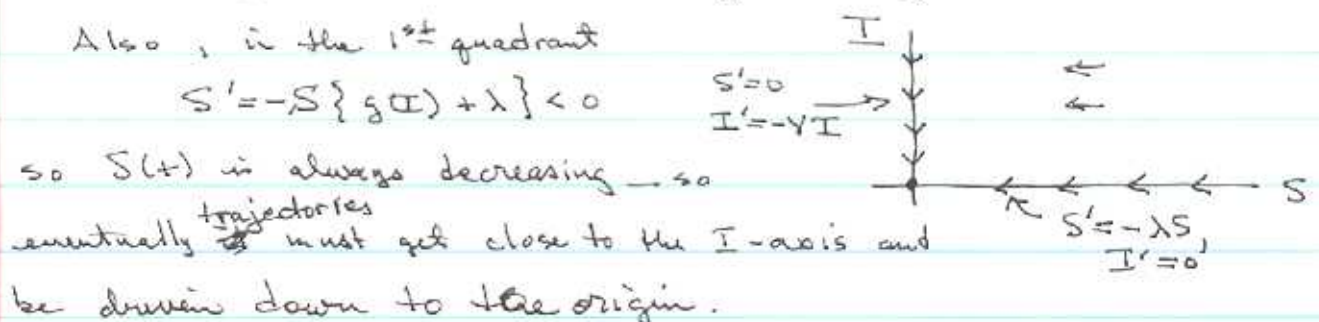 Also, in the 1st quadrant
S' = -S{g(I) + λ} < 0
so S(t) is always decreasing — so
eventually trajectories must get close to the I-axis and
be driven down to the origin.
I
S'=0
I'=-γI
S
S'=-λS,
I'=0